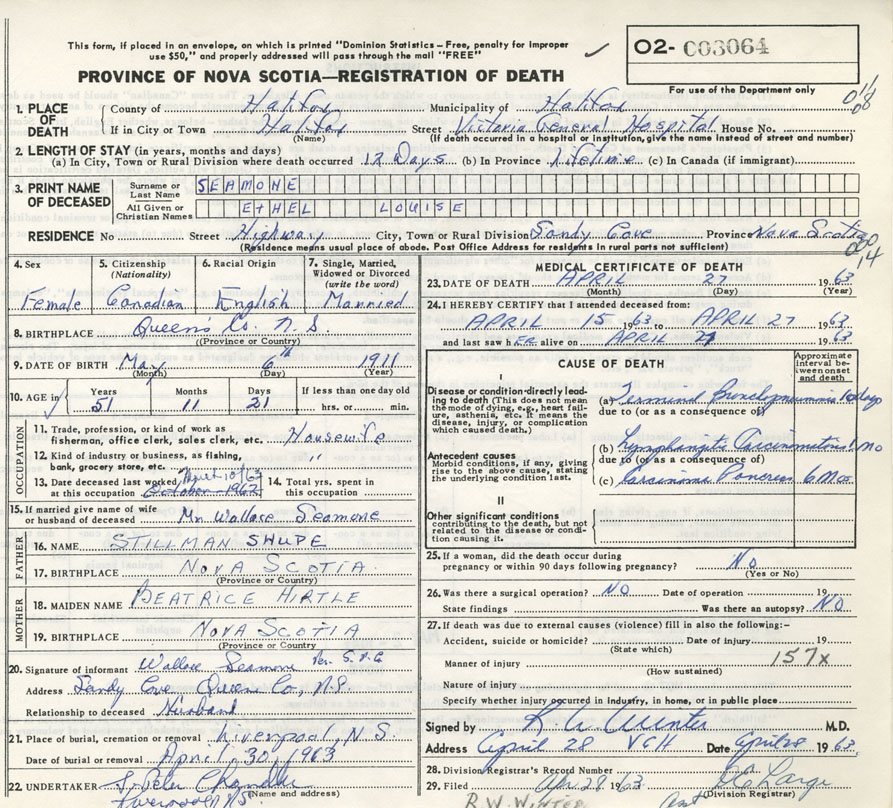 This form, if placed in an envelope, on which is printed "Dominion Statistics - Free, penalty for improper
use $50," and properly addressed will pass through the mail "FREE"
O2- C03064
PROVINCE OF NOVA SCOTIA—REGISTRATION OF DEATH
For use of the Department only
1. PLACE OF DEATH County of Halifax Municipality of Halifax
If in City or Town Halifax Street Victoria General Hospital House No.
(Name) (If death occurred in a hospital or institution, give the name instead of street and number)
2. LENGTH OF STAY (in years, months and days)
(a) In City, Town or Rural Division where death occurred 12 Days (b) In Province Lifetime (c) In Canada (if immigrant)
3. PRINT NAME OF DECEASED Surname or Last Name SEAMONE
All Given or Christian Names ETHEL LOUISE
RESIDENCE No Street Highway City, Town or Rural Division Sandy Cove Province Nova Scotia
(Residence means usual place of abode. Post Office Address for residents in rural parts not sufficient)
4. Sex 5. Citizenship (Nationality) 6. Racial Origin 7. Single, Married, Widowed or Divorced (write the word)
Female Canadian English Married
8. BIRTHPLACE Queen's Co. N.S.
(Province or Country)
9. DATE OF BIRTH May 6th 1911
(Month) (Day) (Year)
10. AGE in Years Months Days If less than one day old
51 11 21 hrs. or min.
OCCUPATION
11. Trade, profession, or kind of work as
fisherman, office clerk, sales clerk, etc. Housewife
12. Kind of industry or business, as fishing,
bank, grocery store, etc. "
13. Date deceased last worked at this occupation March 10/63 October 1962 14. Total yrs. spent in this occupation
15. If married give name of wife
or husband of deceased Mr. Wallace Seamone
FATHER
16. NAME STILLMAN SHUPE
17. BIRTHPLACE NOVA SCOTIA
(Province or Country)
MOTHER
18. MAIDEN NAME BEATRICE HIRTLE
19. BIRTHPLACE NOVA SCOTIA
(Province or Country)
20. Signature of informant Wallace Seamone Per.
Address Sandy Cove Queens Co, N.S.
Relationship to deceased Husband
21. Place of burial, cremation or removal Liverpool, N.S.
Date of burial or removal April 30, 1963
22. UNDERTAKER S. Peter Chandler
(Name and address)
Liverpool N.S.
MEDICAL CERTIFICATE OF DEATH
23. DATE OF DEATH APRIL 27 1963
(Month) (Day) (Year)
24. I HEREBY CERTIFY that I attended deceased from:
APRIL 15 1963 to APRIL 27 1963
and last saw hER alive on APRIL 1963
CAUSE OF DEATH Approximate interval between onset and death
I
Disease or condition directly leading to death (This does not mean the mode of dying, e.g., heart failure, asthenia, etc. It means the disease, injury, or complication which caused death.)
(a) Terminal Bronchopneumonia days
due to (or as a consequence of)
Antecedent causes
Morbid conditions, if any, giving rise to the above cause, stating the underlying condition last.
(b) Lymphangitic Carcinomatosis 1 mo
due to (or as a consequence of)
(c) Carcinoma Pancreas 6 Mos
II
Other significant conditions
contributing to the death, but not related to the disease or condition causing it.
25. If a woman, did the death occur during
pregnancy or within 90 days following pregnancy? No
(Yes or No)
26. Was there a surgical operation? NO Date of operation 19
State findings Was there an autopsy? NO
27. If death was due to external causes (violence) fill in also the following:-
Accident, suicide or homicide? Date of injury 19
(State which)
Manner of injury 157x
(How sustained)
Nature of injury
Specify whether injury occurred in Industry, in home, or in public place
Signed by M.D.
Address April 28 VGH Date April 28 1963
28. Division Registrar's Record Number
29. Filed Apr 28 1963
(Division Registrar)
R.W. WINTER